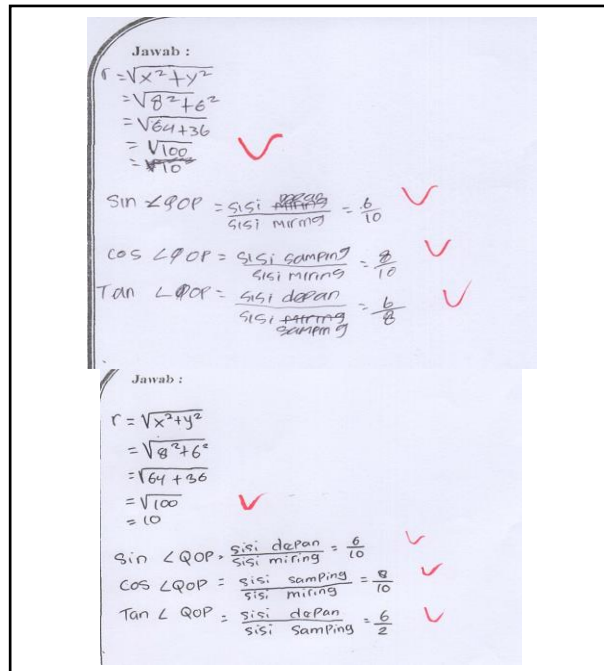 Jawab :
r = √x² + y²
= √8² + 6²
= √64 + 36
= √100
= 10
Sin ∠QOP = sisi / sisi miring = 6/10
cos ∠QOP = sisi samping / sisi miring = 8/10
Tan ∠QOP = sisi depan / sisi samping = 6/8
Jawab :
r = √x² + y²
= √8² + 6²
= √64 + 36
= √100
= 10
Sin ∠QOP = sisi depan / sisi miring = 6/10
COS ∠QOP = sisi samping / sisi miring = 8/10
Tan ∠ QOP = sisi depan / sisi samping = 6/2